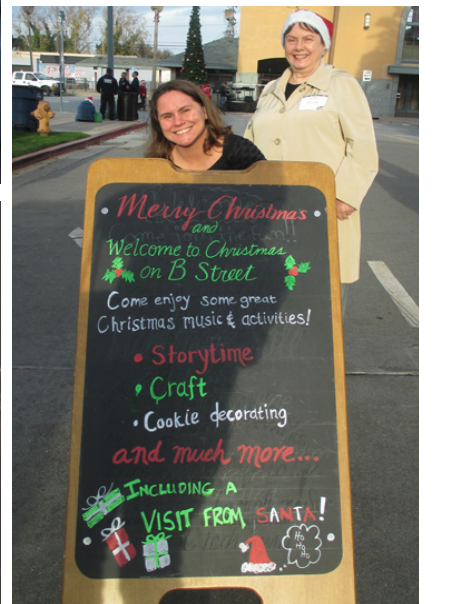 Merry Christmas
and
Welcome to Christmas
on B Street
Come enjoy some great
Christmas music & activities!
• Storytime
• Craft
• Cookie decorating
and much more...
INCLUDING A
VISIT FROM SANTA!
Ho
Ho
Ho